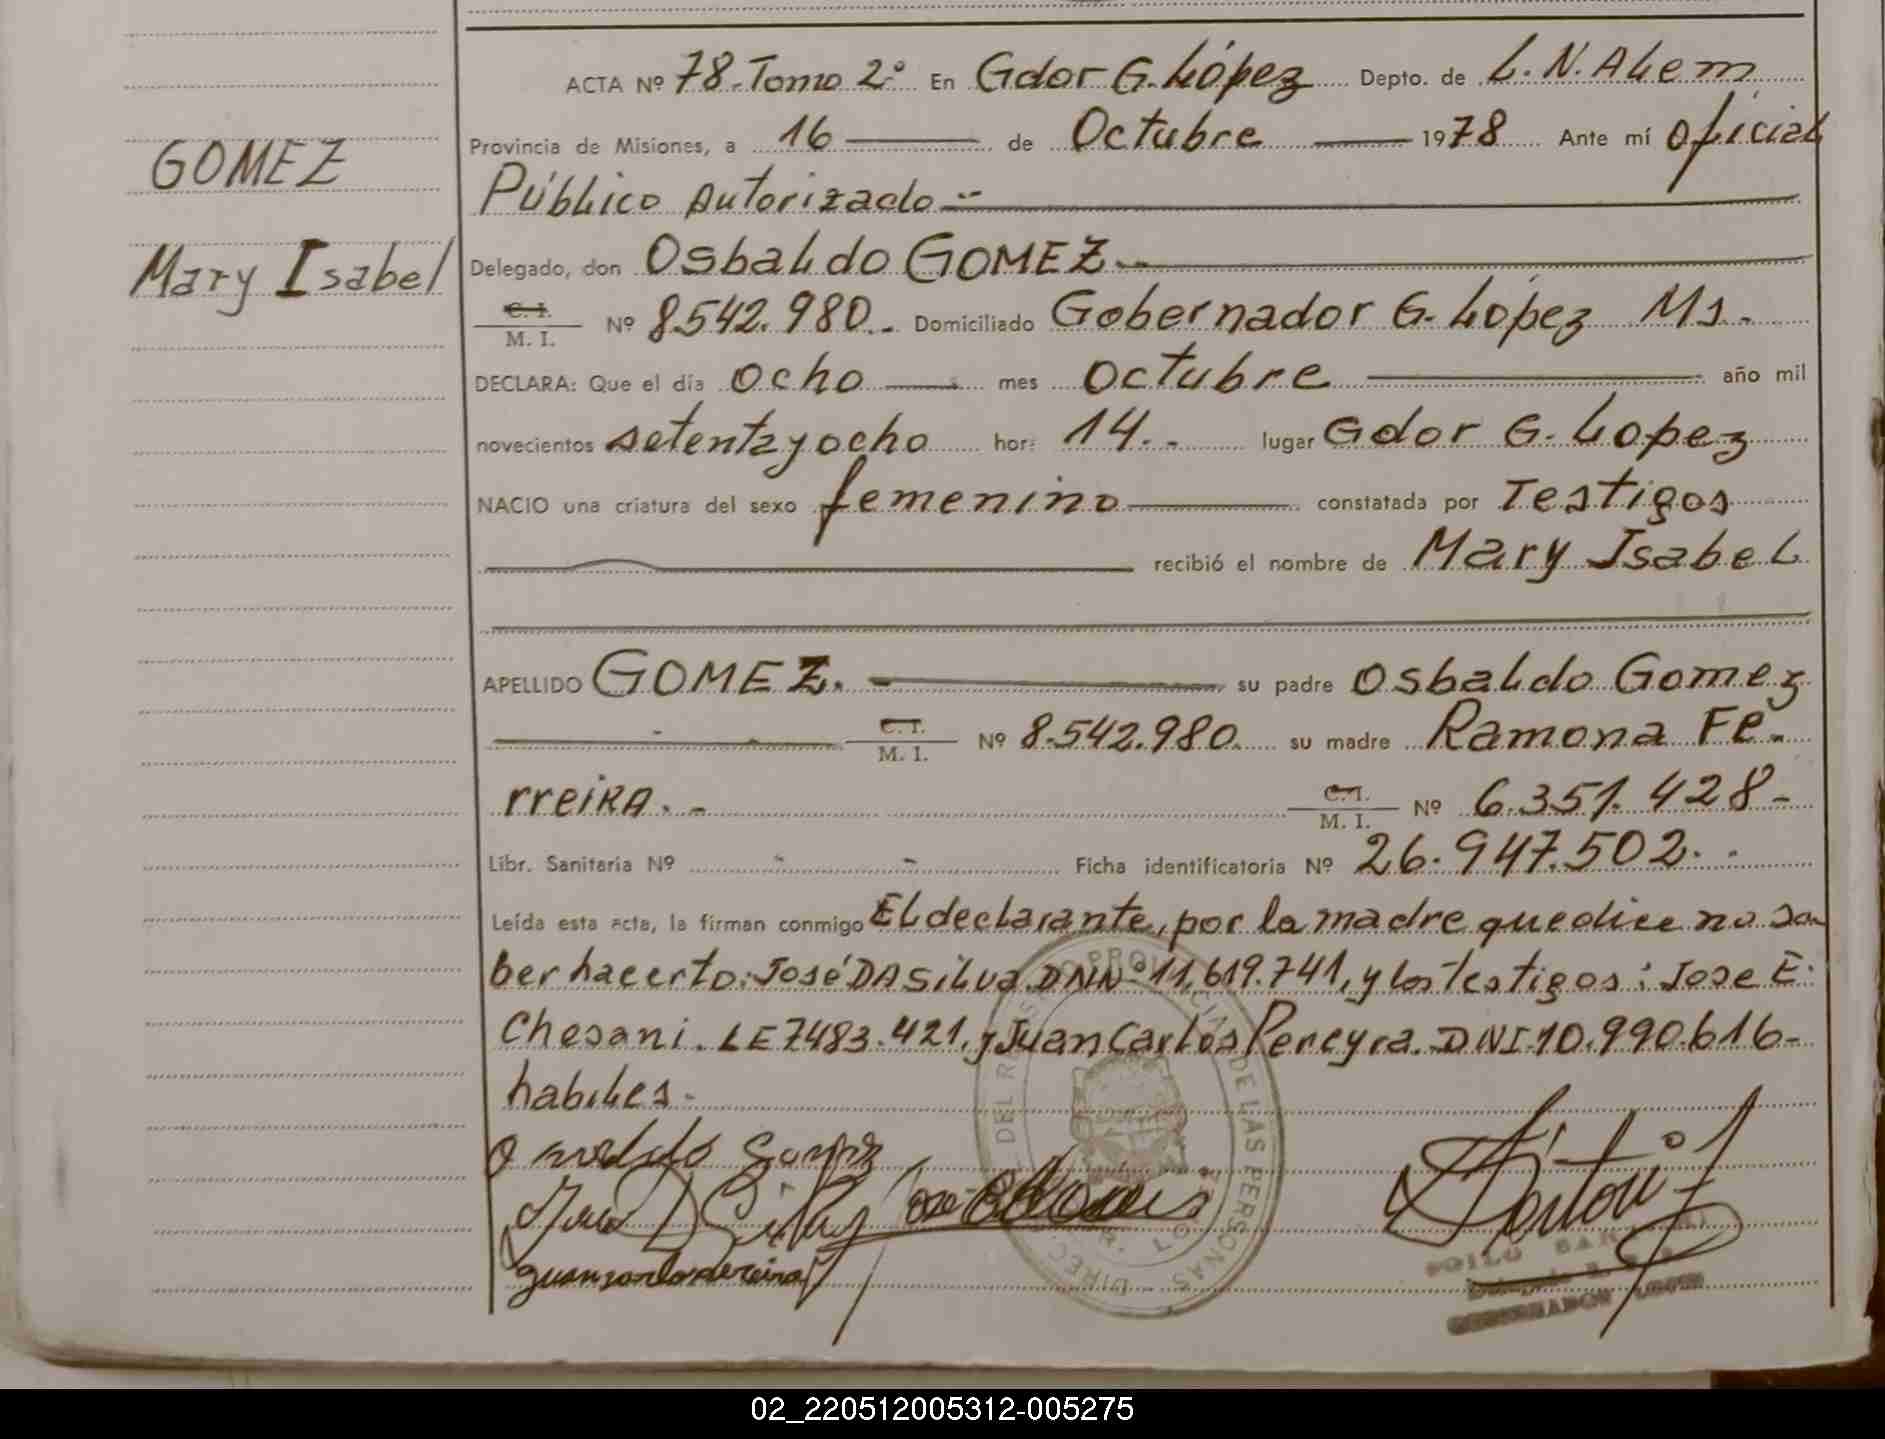 ACTA Nº 78.Tomo 2º En Gdor G. López Depto. de L.N.ALem
Provincia de Misiones, a 16 de Octubre 1978 Ante mí oficial
GOMEZ
Público Autorizado.-
Mary Isabel
Delegado, don OsbaLdo GOMEZ.-
C. I.
M. I.
Nº 8.542.980.- Domiciliado Gobernador G. López Ms.
DECLARA: Que el día ocho mes octubre año mil
novecientos setenta y ocho hor: 14.- lugar Gdor G. Lopez
NACIO una criatura del sexo femenino constatada por Testigos
recibió el nombre de Mary IsabeL
APELLIDO GOMEZ. su padre OsbaLdo Gomez
C. I.
M. I.
Nº 8.542.980. su madre Ramona Fe-
rreiRA.-
C. I.
M. I.
Nº 6.351.428-
Libr. Sanitaria Nº - - Ficha identificatoria Nº 26.947.502.-
Leída esta acta, la firman conmigo EL declarante, por la madre que dice no sa
ber hacerlo: José DA SiLva DNNº 11.619.741, y los Testigos: Jose E.
Chesani. LE 7483.421. y Juan Carlos Pereyra. DNI.10.990.616-
habiles.-
DE LAS PERSONAS
GOBERNADOR LOPEZ
02_220512005312-005275